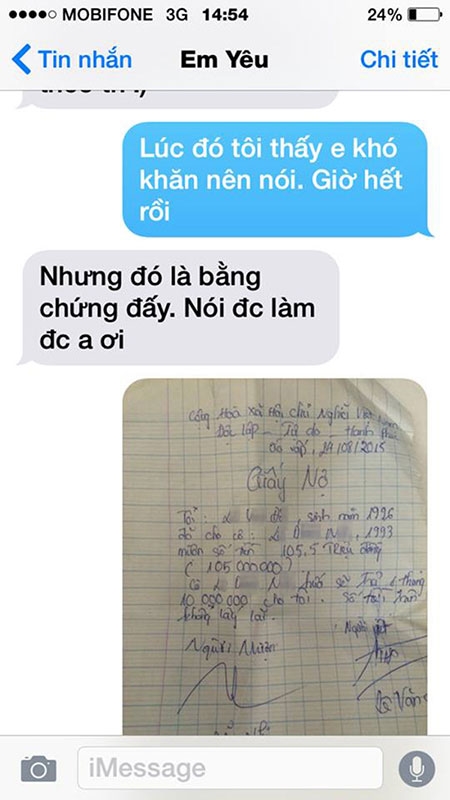 MOBIFONE 3G 14:54 24%
Tin nhắn Em Yêu Chi tiết
Lúc đó tôi thấy e khó
khăn nên nói. Giờ hết
rồi
Nhưng đó là bằng
chứng đấy. Nói đc làm
đc a ơi
Cộng Hoà xã Hội chủ Nghĩa Việt
Độc lập - Tự do - Hạnh
24/08/2015
Giấy Nợ
Tôi: sinh năm 1926
đã cho cô: , 1993
mượn số 105,5 Triệu đồng
(105 000 000)
Cô sẽ Trả 1 tháng
10 000 000 cho tôi. Số
không lấy lãi.
Người
Người Mượn
Văn
iMessage